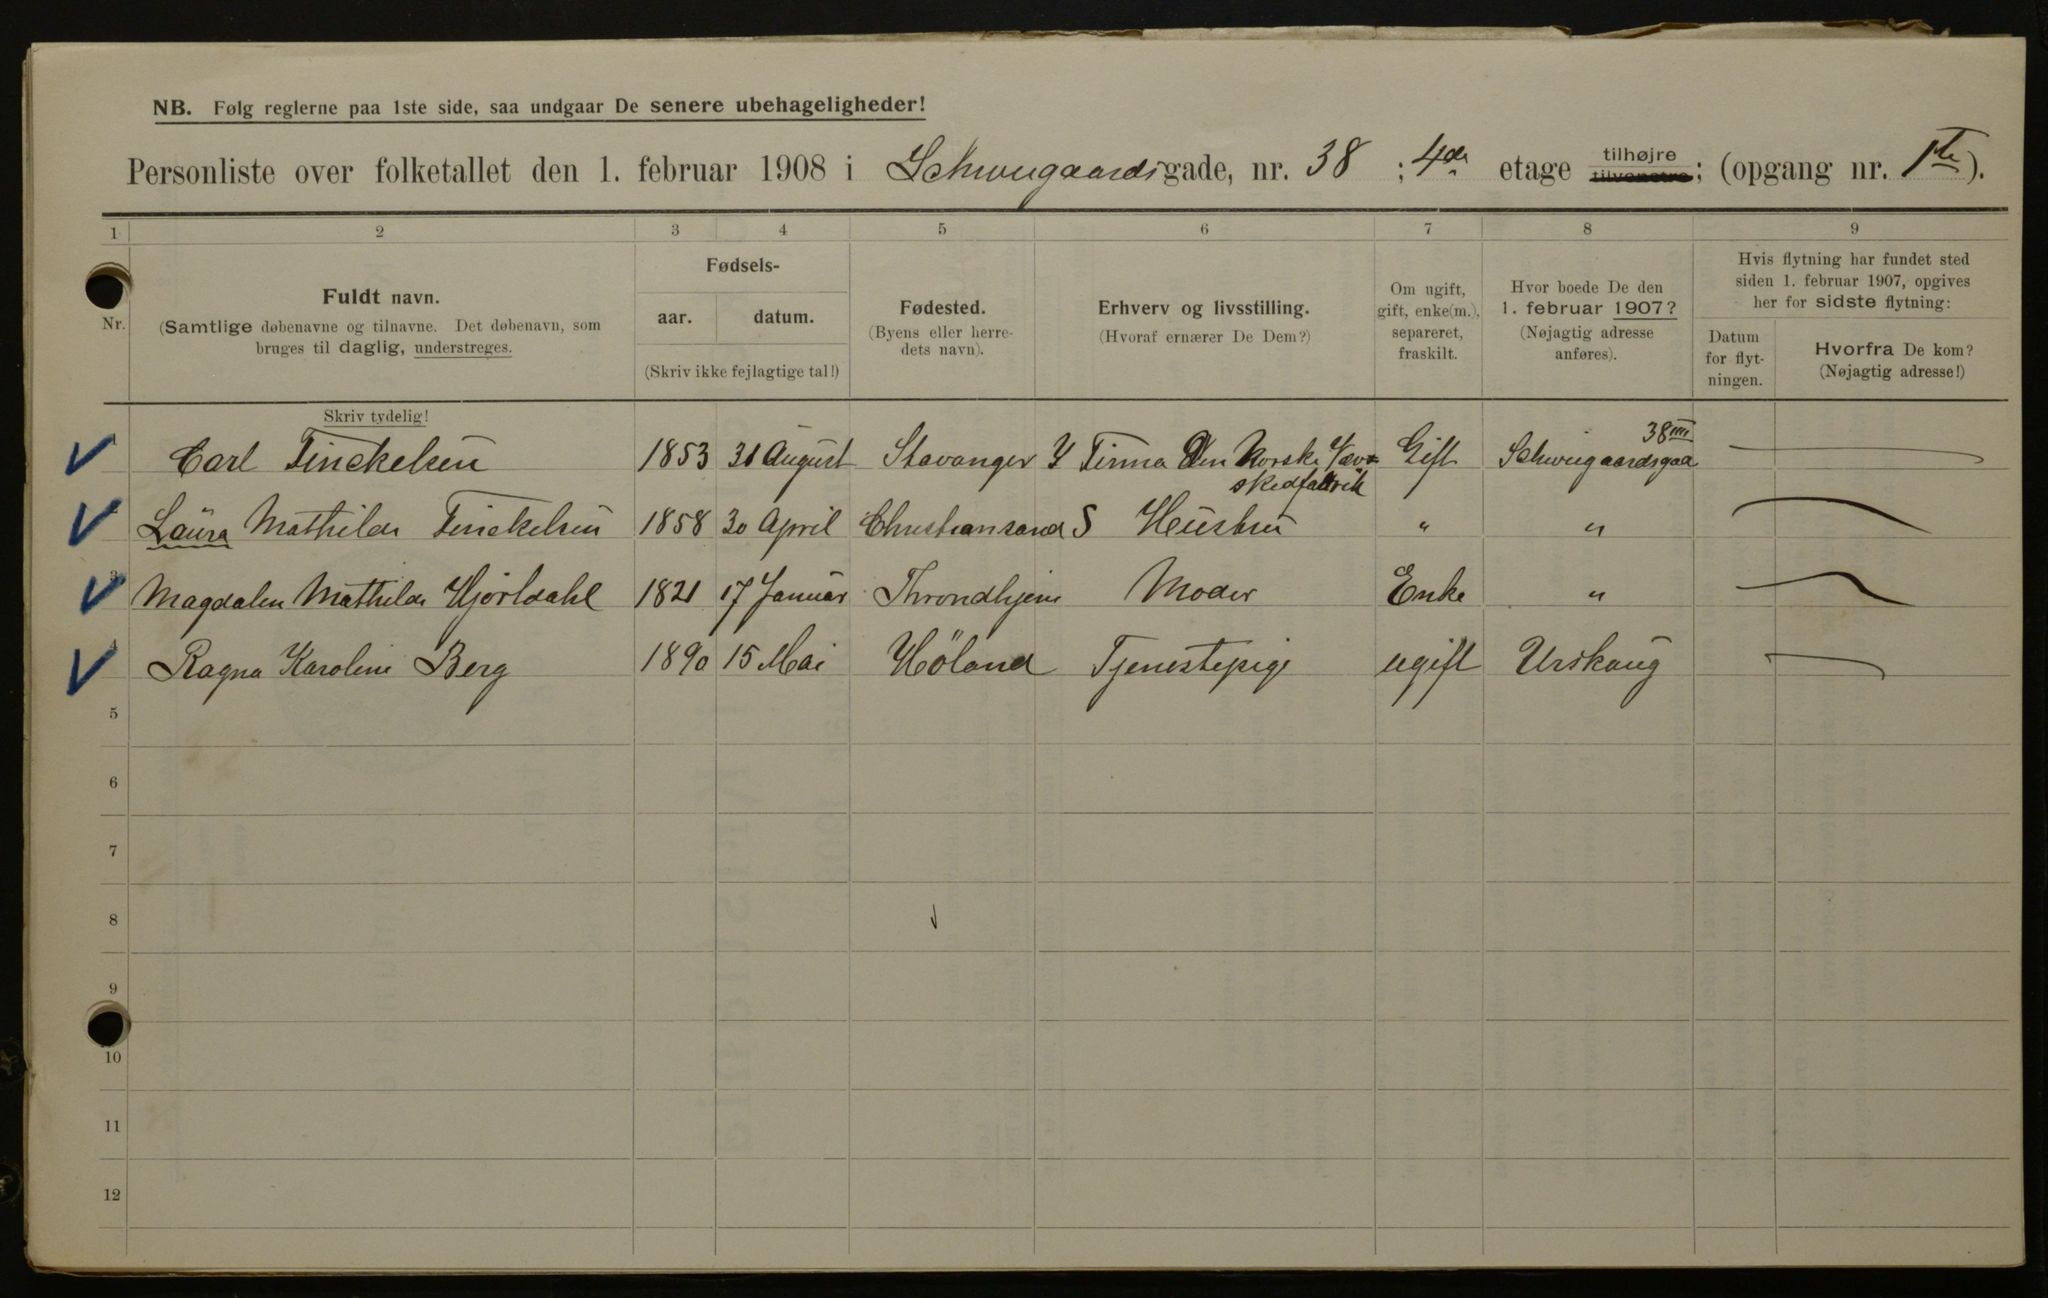 NB. Følg reglerne paa 1ste side, saa undgaar De senere ubehageligheder!
Personliste over folketallet den 1. februar 1908 i Schweigaardsgade, nr. 38 ; 4de etage tilhøjre tilvenstre; (opgang nr. 1ste).
1 2 3 4 5 6 7 8 9
Nr.
Fuldt navn.
(Samtlige døbenavne og tilnavne. Det døbenavn, som
bruges til daglig, understreges.
Fødsels-
aar. datum.
(Skriv ikke fejlagtige tal!)
Fødested.
(Byens eller herre-
dets navn).
Erhverv og livsstilling.
(Hvoraf ernærer De Dem?)
Om ugift,
gift, enke(m.),
separeret,
fraskilt.
Hvor boede De den
1. februar 1907?
(Nøjagtig adresse
anføres).
Hvis flytning har fundet sted
siden 1. februar 1907, opgives
her for sidste flytning:
Datum
for flyt-
ningen.
Hvorfra De kom?
(Nøjagtig adresse!)
Skriv tydelig!
38
Carl Finckelsen 1853 31 August Stavanger Firma Den Norske Gift Schweigaardsgad
skedfabrik
Laura Mathilde Finckelsen 1858 30 April Christiansand S Hustru " "
3 Magdalen Mathilde Hjorldahl 1821 17 Januar Throndhjem Moder Enke "
4 Ragna Karoline Berg 1890 15 Mai Höland Tjenestepige ugift Urskoug
5
6
7
8
9
10
11
12